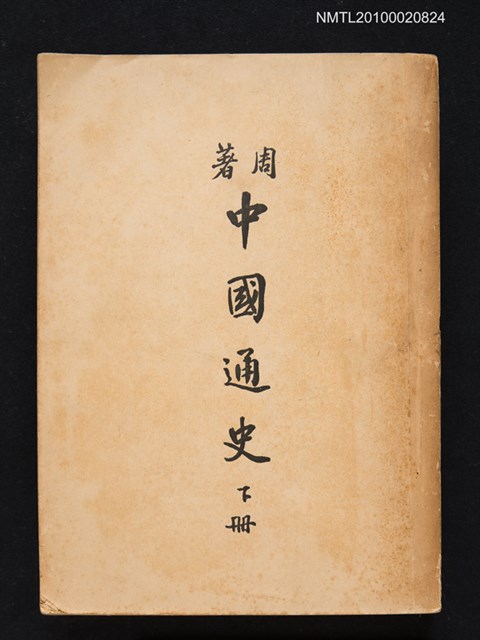 NMTL20100020824
周著
中國通史
下冊